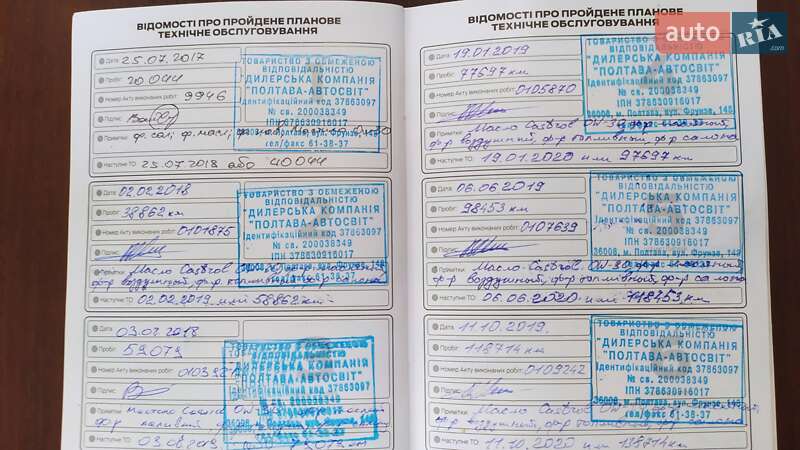 ВІДОМОСТІ ПРО ПРОЙДЕНЕ ПЛАНОВЕ
ТЕХНІЧНЕ ОБСЛУГОВУВАННЯ
Дата: 25.07.2017
Пробіг: 20044
Номер Акту виконаних робіт: 9946
Підпис:
Примітки: ф. сал; ф. масл;
Наступне ТО: 25.07.2018 або 40044
ТОВАРИСТВО З ОБМЕЖЕНОЮ
ВІДПОВІДАЛЬНІСТЮ
"ДИЛЕРСЬКА КОМПАНІЯ
"ПОЛТАВА-АВТОСВІТ"
Ідентифікаційний код 37863097
№ св. 200038349
ІПН 378630916017
тел/факс 61-38-37
Дата: 02.02.2018
Пробіг: 38862 км
Номер Акту виконаних робіт: 0101875
Підпис:
Примітки: Масло Castrol OW30,
ф-р воздушный, ф-р топливный, ф-р салона
Наступне ТО: 02.02.2019 или 58862 км
ТОВАРИСТВО З ОБМЕЖЕНОЮ
ВІДПОВІДАЛЬНІСТЮ
"ДИЛЕРСЬКА КОМПАНІЯ
"ПОЛТАВА-АВТОСВІТ"
Ідентифікаційний код 37863097
№ св. 200038349
ІПН 378630916017
Дата: 03.08.2018
Пробіг: 59079
Номер Акту виконаних робіт:
Підпис:
Примітки:
Наступне ТО: 03.08.2019
ТОВАРИСТВО З ОБМЕЖЕНОЮ
ВІДПОВІДАЛЬНІСТЮ
"ДИЛЕРСЬКА КОМПАНІЯ
"ПОЛТАВА-АВТОСВІТ"
Ідентифікаційний код 37863097
№ св. 200038349
ІПН 378630916017
ВІДОМОСТІ ПРО ПРОЙДЕНЕ ПЛАНОВЕ
ТЕХНІЧНЕ ОБСЛУГОВУВАННЯ
auto RIA.com
Дата: 19.01.2019
Пробіг: 77697 км
Номер Акту виконаних робіт: 0105870
Підпис:
Примітки: Масло Castrol OW30,
ф-р воздушный, ф-р топливный, ф-р салона
Наступне ТО: 19.01.2020 или 97697 км
ТОВАРИСТВО З ОБМЕЖЕНОЮ
ВІДПОВІДАЛЬНІСТЮ
"ДИЛЕРСЬКА КОМПАНІЯ
"ПОЛТАВА-АВТОСВІТ"
Ідентифікаційний код 37863097
№ св. 200038349
ІПН 378630916017
36008, м. Полтава, вул. Фрунзе, 148
Дата: 06.06.2019
Пробіг: 98453 км
Номер Акту виконаних робіт: 0107639
Підпис:
Примітки: Масло Castrol OW30,
ф-р воздушный, ф-р топливный, ф-р салона
Наступне ТО: 06.06.2020 или 118453 км
ТОВАРИСТВО З ОБМЕЖЕНОЮ
ВІДПОВІДАЛЬНІСТЮ
"ДИЛЕРСЬКА КОМПАНІЯ
"ПОЛТАВА-АВТОСВІТ"
Ідентифікаційний код 37863097
№ св. 200038349
ІПН 378630916017
36008, м. Полтава, вул. Фрунзе, 148
Дата: 11.10.2019.
Пробіг: 118714 км
Номер Акту виконаних робіт: 0109242
Підпис:
Примітки: Масло Castrol OW30,
ф-р воздушный, ф-р топливный, ф-р салона
Наступне ТО: 11.10.2020 или 138714 км
ТОВАРИСТВО З ОБМЕЖЕНОЮ
ВІДПОВІДАЛЬНІСТЮ
"ДИЛЕРСЬКА КОМПАНІЯ
"ПОЛТАВА-АВТОСВІТ"
Ідентифікаційний код 37863097
№ св. 200038349
ІПН 378630916017
36008, м. Полтава, вул. Фрунзе, 148
тел/факс 61-38-37